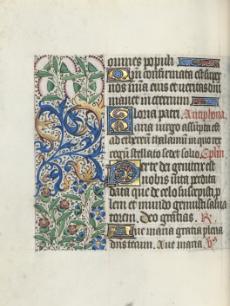 omnes populi
Qm confirmata est sup
nos mia eius et veritas dni
manet in eternum
Gloria patri. Antiphona.
Maria virgo assumpta est
ad ethereum thalamum in quo rex
regum stellato sedet solio. Cplm
Per te dei genitrix est
nobis vita perdita
data que de celo suscepisti p
lem et mundo genuisti salva
torem. Deo gratias. R.
Ave maria gratia plena
dns tecum. Ave maria. V.